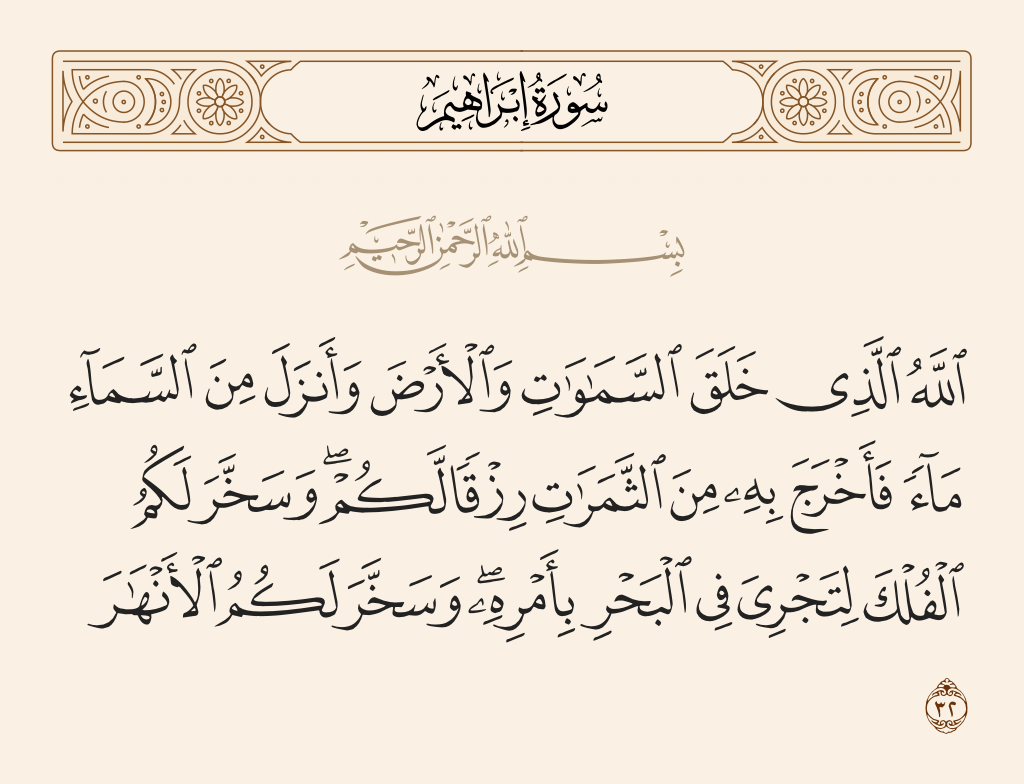 سُورَةُ إِبْرَاهِيمَ
بِسْمِ ٱللَّهِ ٱلرَّحْمَٰنِ ٱلرَّحِيمِ
ٱللَّهُ ٱلَّذِى خَلَقَ ٱلسَّمَـٰوَٰتِ وَٱلْأَرْضَ وَأَنزَلَ مِنَ ٱلسَّمَآءِ
مَآءً فَأَخْرَجَ بِهِۦ مِنَ ٱلثَّمَرَٰتِ رِزْقًا لَّكُمْ ۖ وَسَخَّرَ لَكُمُ
ٱلْفُلْكَ لِتَجْرِىَ فِى ٱلْبَحْرِ بِأَمْرِهِۦ ۖ وَسَخَّرَ لَكُمُ ٱلْأَنْهَـٰرَ
٣٢